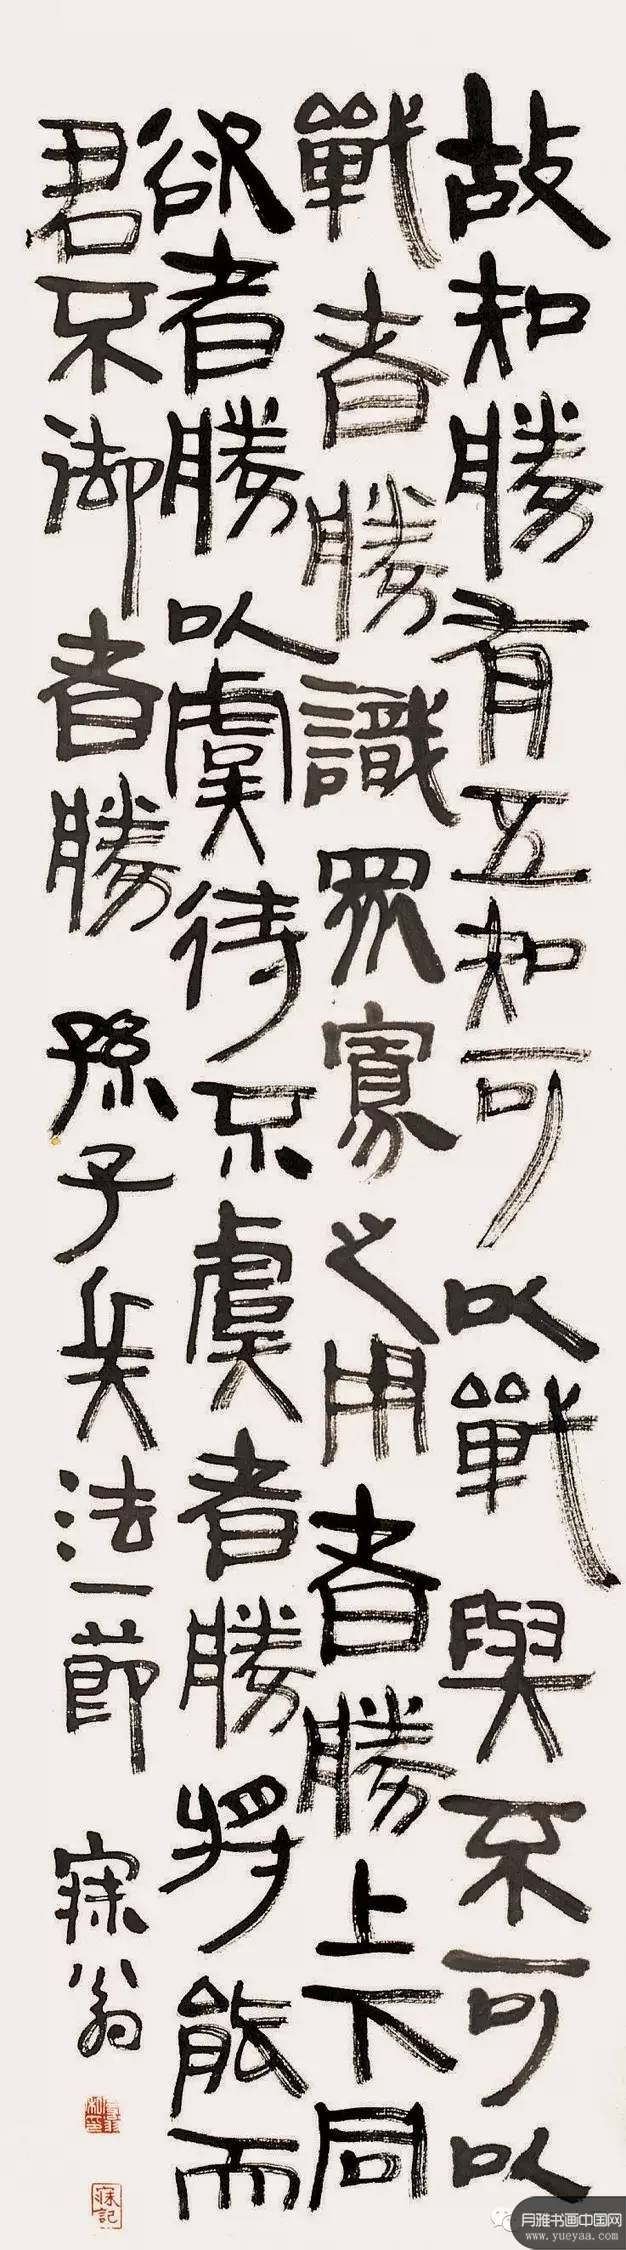 故知勝有五知可以戰與不可以
戰者勝識眾寡之用者勝上下同
欲者勝以虞待不虞者勝將能而
君不御者勝 孫子兵法一節 寐翁
寐記
月雅书画中国网
www.yueyaa.com